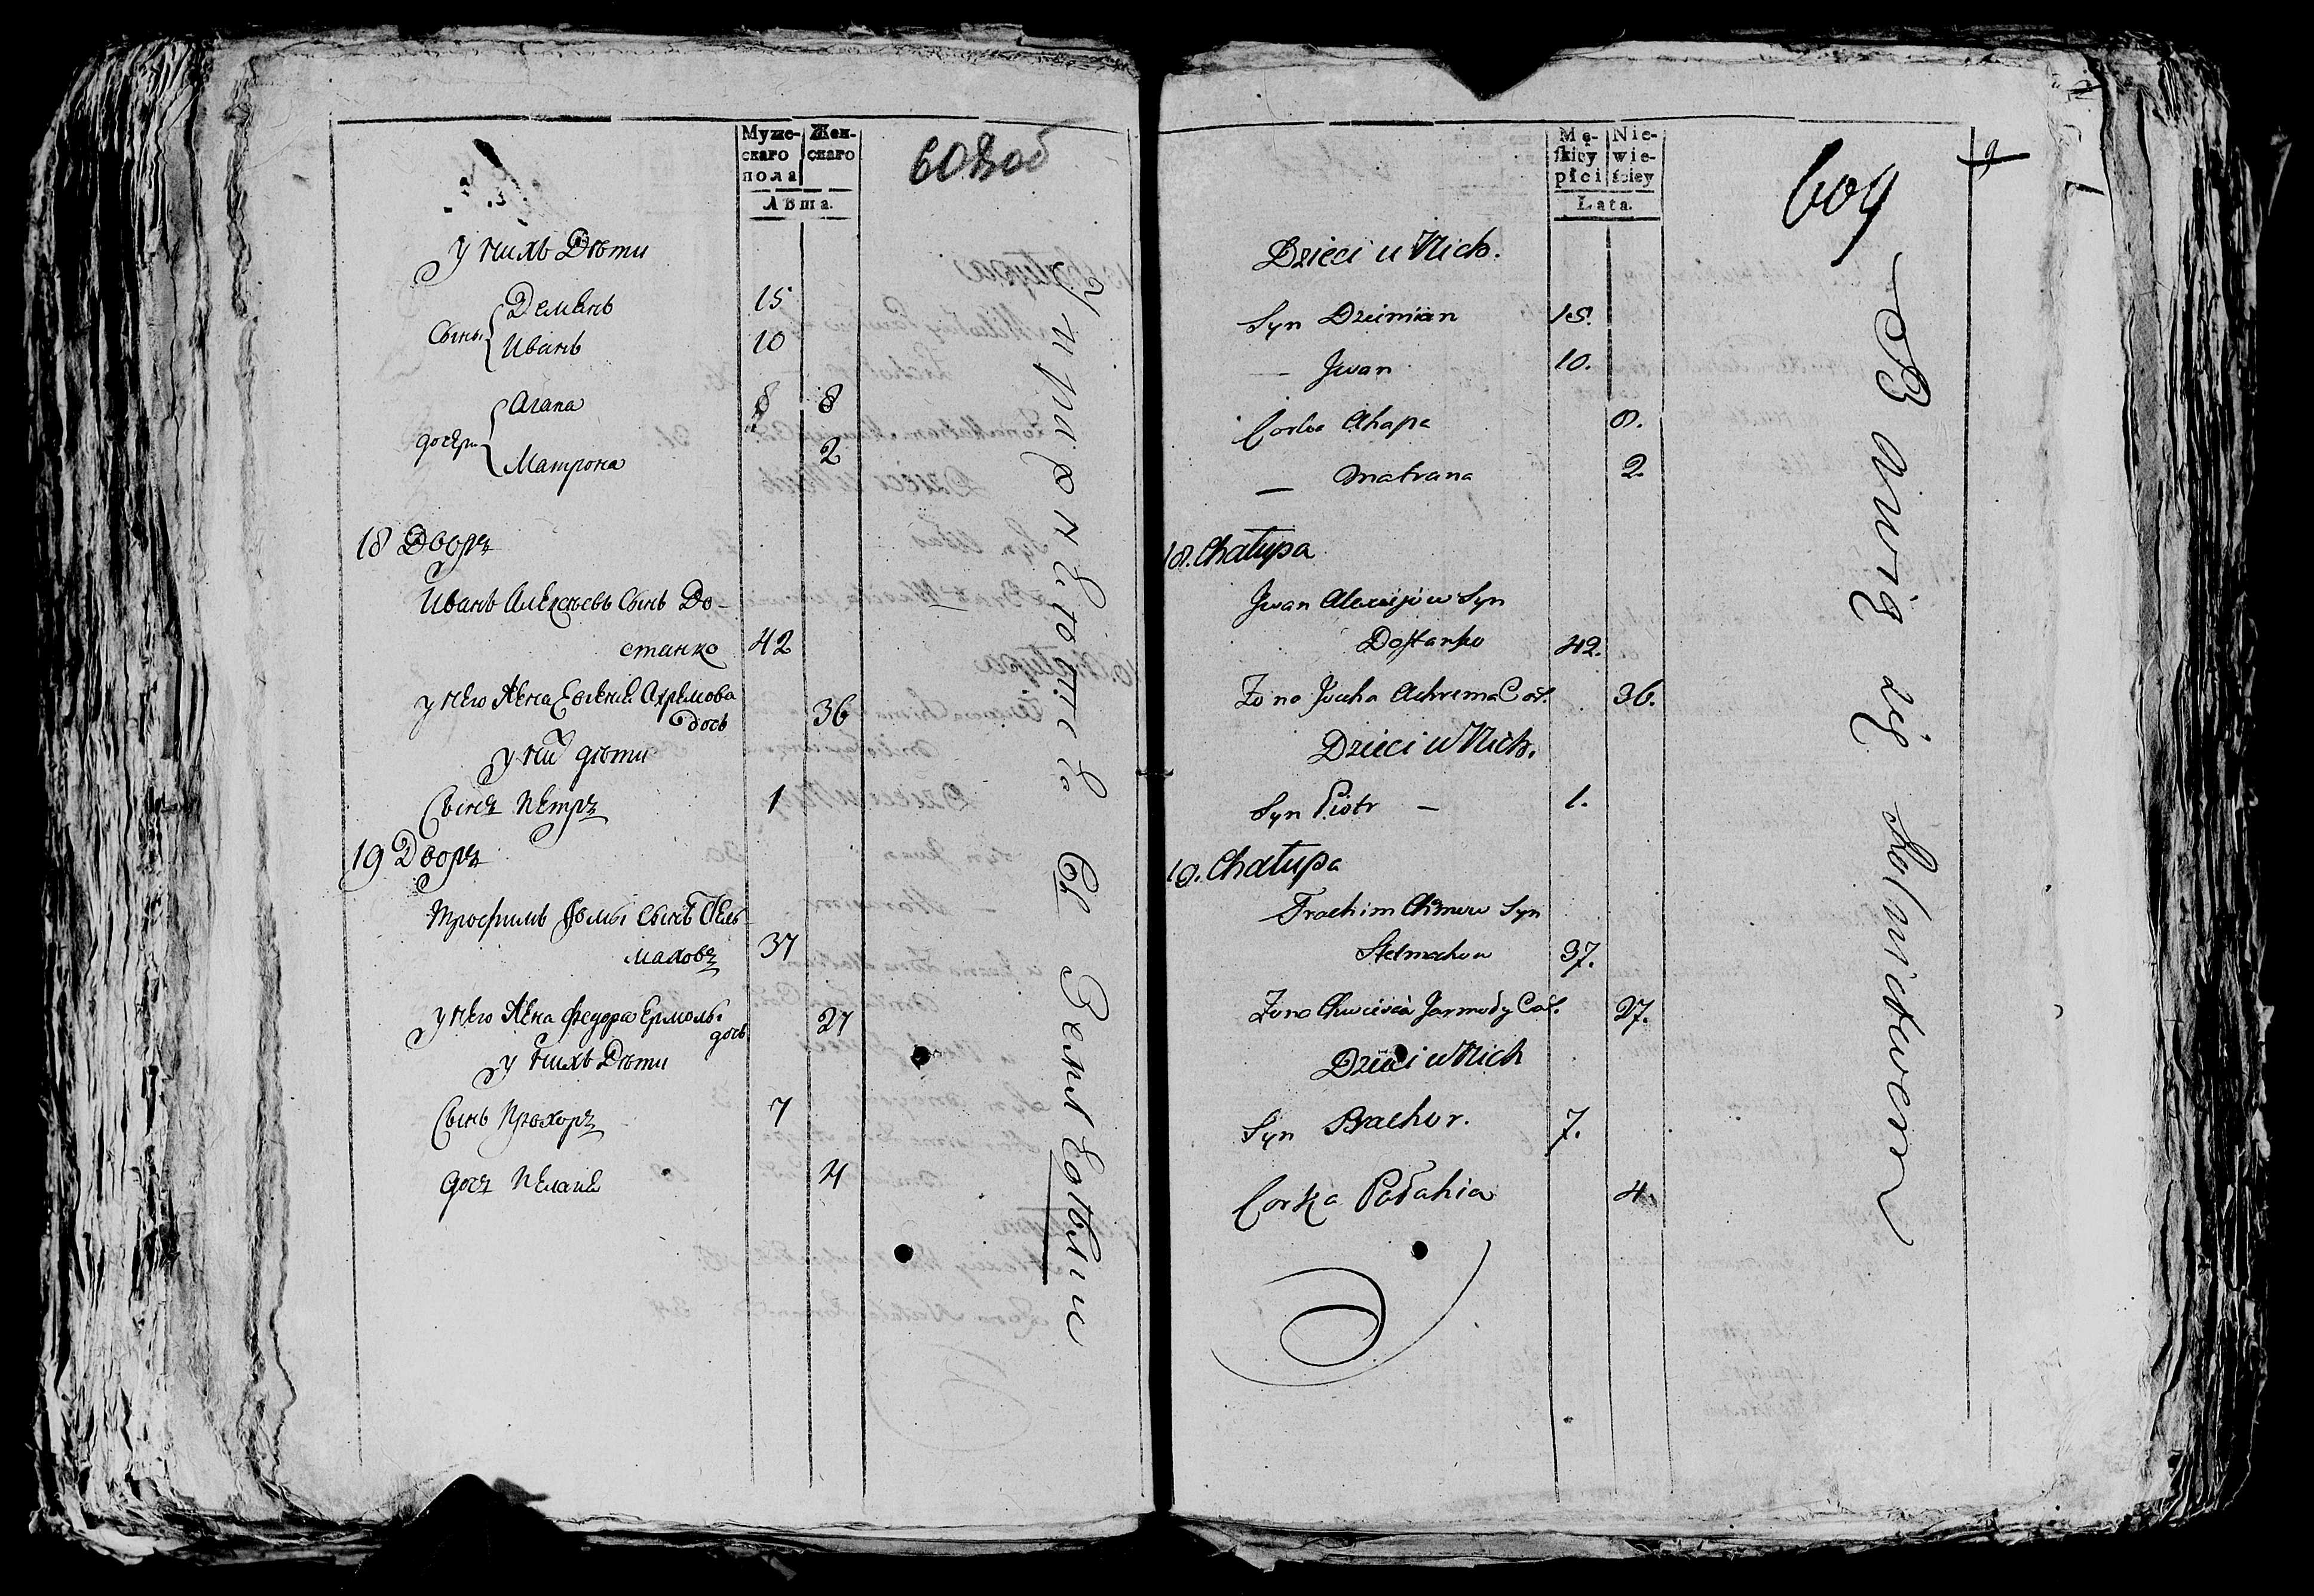 Муже-
скаго
пола
Жен-
скаго
Лѣта.
608 об
у нихъ Дѣти
Сыны
Демѣнъ 15
Иванъ 10
дочери
Агапа 8
Матрона 2
18 Дворъ
Иванъ Алексѣевъ Сынъ До-
станко 42
у него Жена Евгенія Ахремова
дочь 36
у ни дѣти
Сынъ Петръ 1
19 Дворъ
Трофимъ Фомы Сынъ Стель
маховъ 37
у него Жена Федора Ермолы
дочь 27
у нихъ Дѣти
Сынъ Прохоръ 7
дочь Пелагея 4
Mę-
skiey
płci
Nie-
wie-
ściey
Lata.
609
Dzieci u Nich.
Syn Dziemian 15.
— Jwan 10.
Corka Ahapa 8.
— Matrana 2.
18. Chałupa
Jwan Alexiejow Syn
Dostanko 42.
Zona Jewha Achrema Cor. 36.
Dzieci u Nich.
Syn Piotr — 1.
19. Chałupa
Trachim Chomow Syn
Stelmachow 37.
Zona Chwiesia Jarmoły Cor. 27.
Dzieci u Nich
Syn Prachor. 7.
Corka Połahia 4.